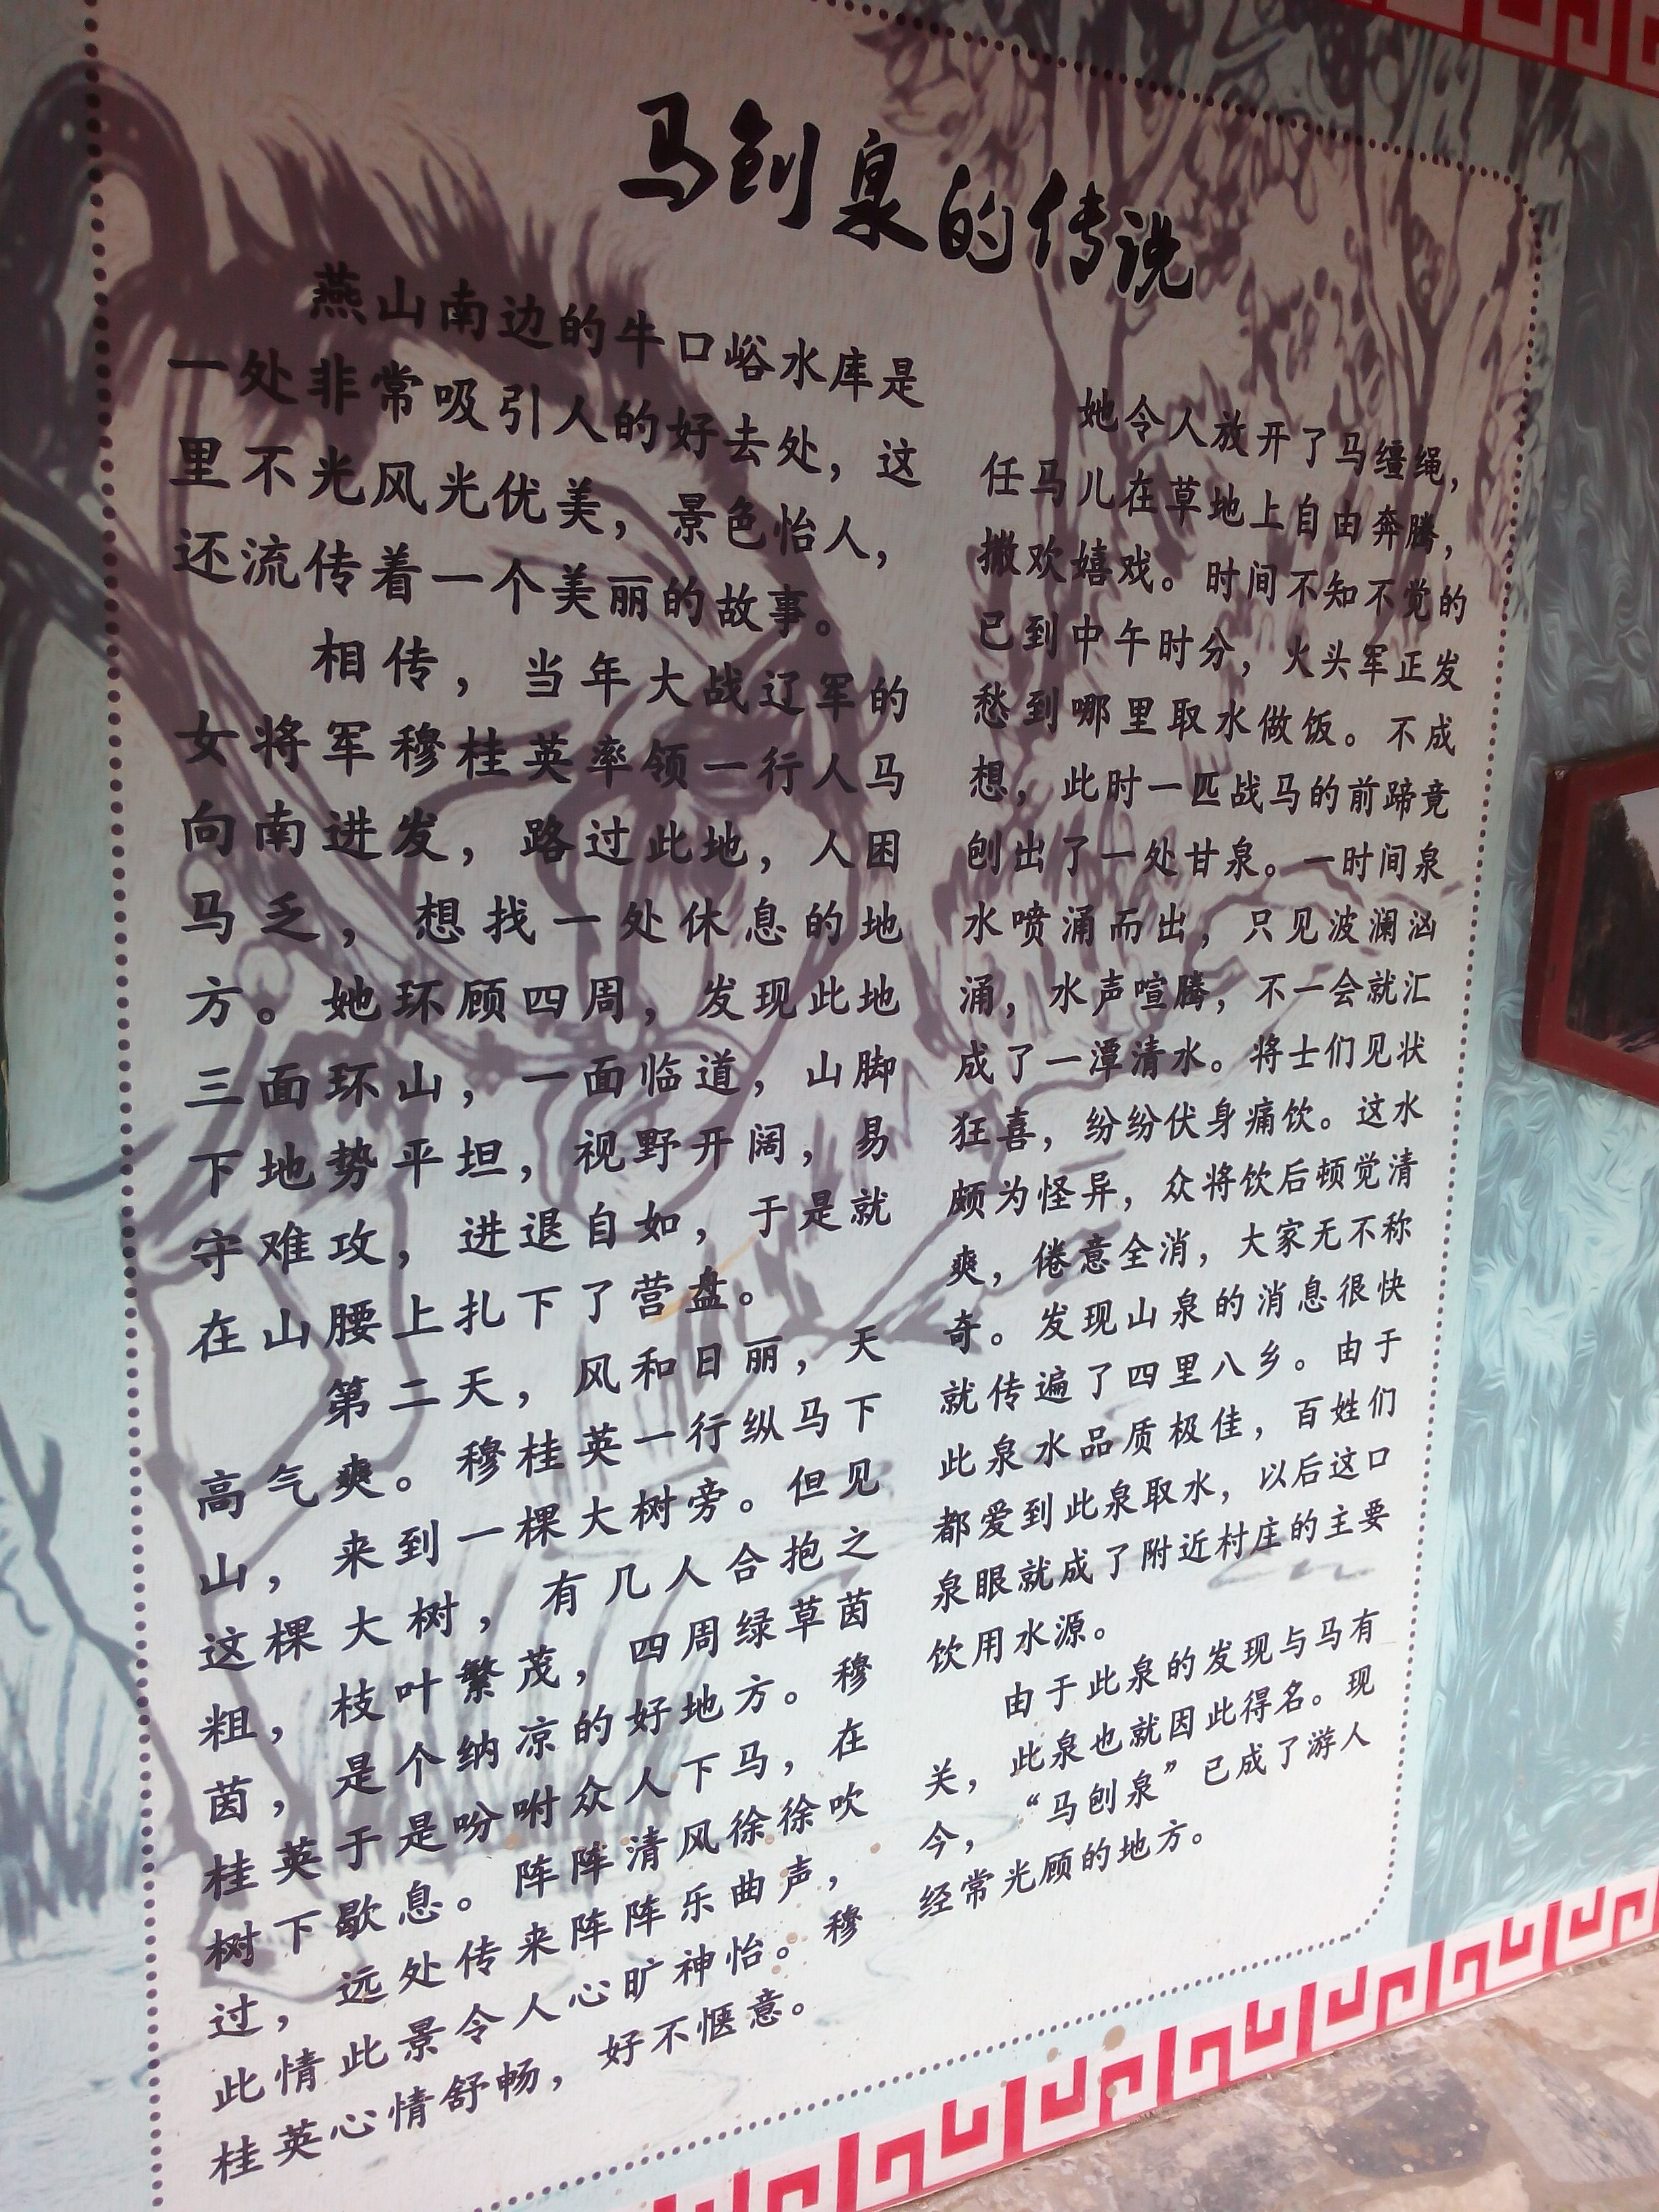 马刨泉的传说
燕山南边的牛口峪水库是
一处非常吸引人的好去处，这
里不光风光优美，景色怡人，
还流传着一个美丽的故事。
相传，当年大战辽军的
女将军穆桂英率领一行人马
向南进发，路过此地，人困
马乏，想找一处休息的地
方。她环顾四周，发现此地
三面环山，一面临道，山脚
下地势平坦，视野开阔，易
守难攻，进退自如，于是就
在山腰上扎下了营盘。
第二天，风和日丽，天
高气爽。穆桂英一行纵马下
山，来到一棵大树旁。但见
这棵大树，有几人合抱之
粗，枝叶繁茂，四周绿草茵
茵，是个纳凉的好地方。穆
桂英于是吩咐众人下马，在
树下歇息。阵阵清风徐徐吹
过，远处传来阵阵乐曲声，
此情此景令人心旷神怡。穆
桂英心情舒畅，好不惬意。
她令人放开了马缰绳，
任马儿在草地上自由奔腾，
撒欢嬉戏。时间不知不觉的
已到中午时分，火头军正发
愁到哪里取水做饭。不成
想，此时一匹战马的前蹄竟
刨出了一处甘泉。一时间泉
水喷涌而出，只见波澜汹
涌，水声喧腾，不一会就汇
成了一潭清水。将士们见状
狂喜，纷纷伏身痛饮。这水
颇为怪异，众将饮后顿觉清
爽，倦意全消，大家无不称
奇。发现山泉的消息很快
就传遍了四里八乡。由于
此泉水品质极佳，百姓们
都爱到此泉取水，以后这口
泉眼就成了附近村庄的主要
饮用水源。
由于此泉的发现与马有
关，此泉也就因此得名。现
今，“马刨泉”已成了游人
经常光顾的地方。